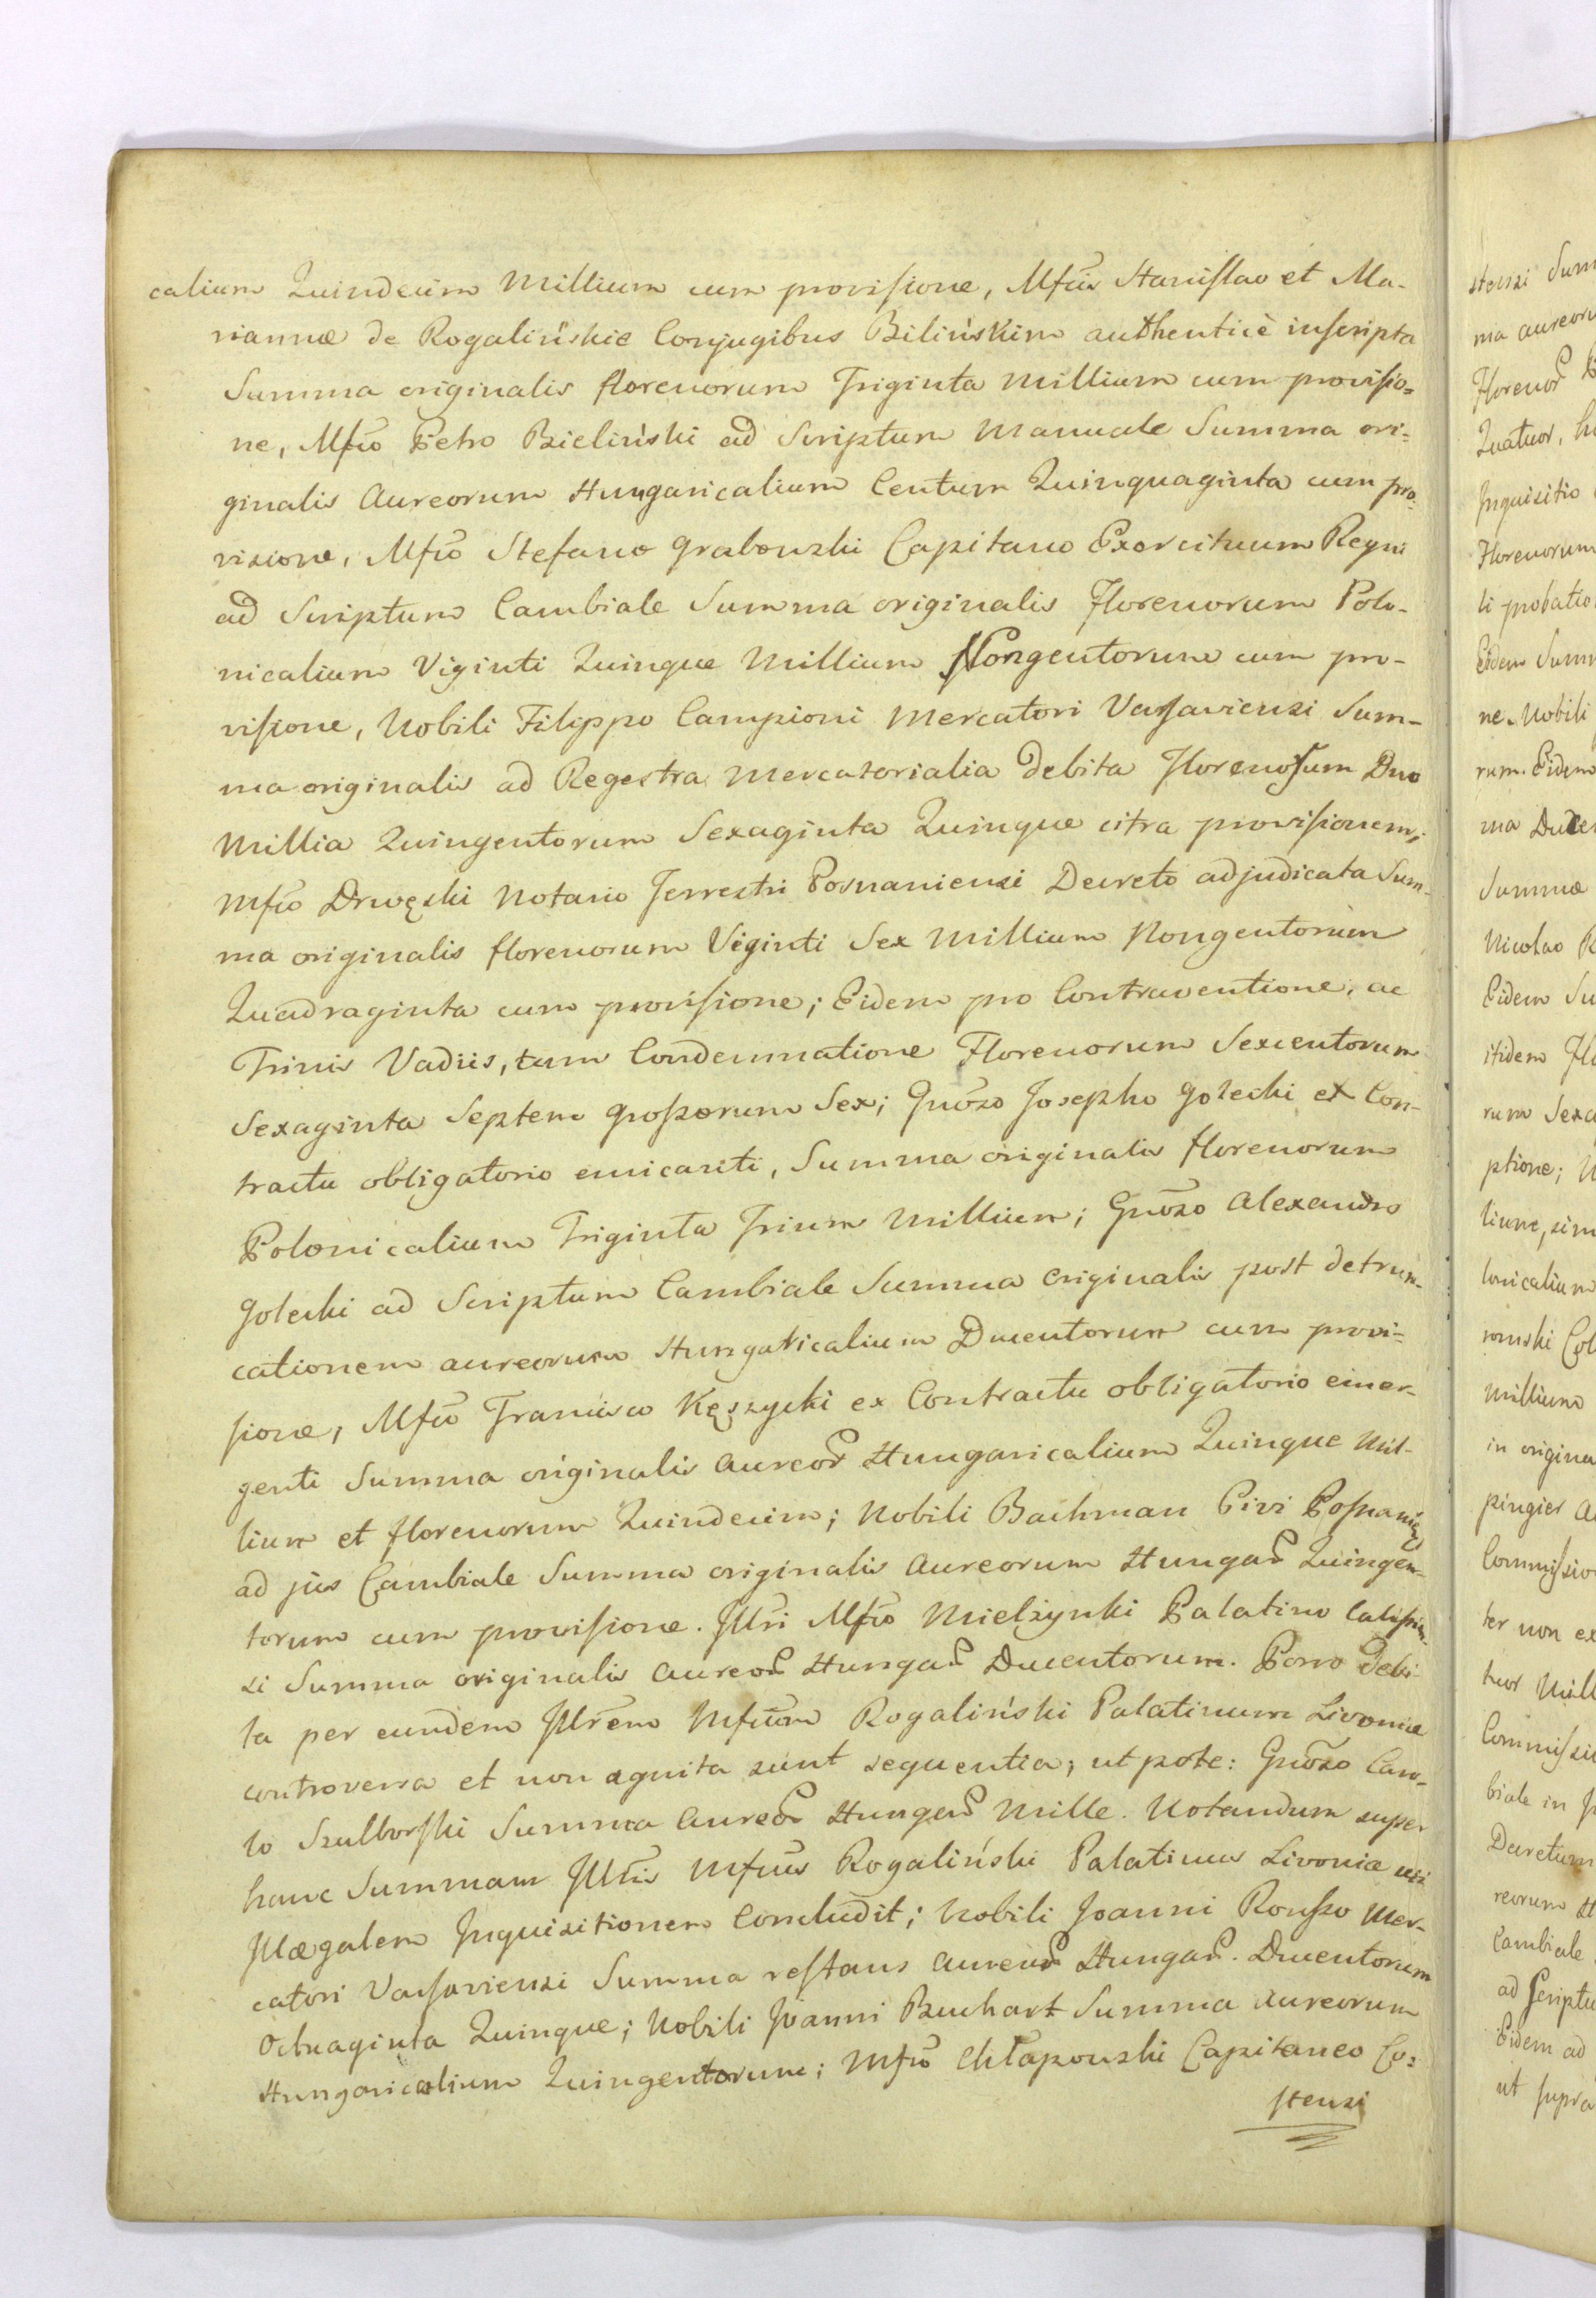 calium Quindecim Millium cum provisione, Mfcis Stanislao et Ma-
riannæ de Rogalińskie Conjugibus Bilińskim authenticè inscripta
Summa originalis florenorum Triginta Millium cum provisio=
ne, Mfco Petro Bieliński ad Scriptum Manuale Summa ori=
ginalis Aureorum Hungaricalium Centum Quinquaginta cum pro=
visione, Mfco Stefano Grabowski Capitano Exercituum Regni
ad Scriptum Cambiale Summa originalis Florenorum Polo-
nicalium Viginti Quinque Millium Nongentorum cum pro-
visione, Nobili Filippo Campioni Mercatori Varsaviensi Sum-
ma originalis ad Regestra Mercatorialia debita Florenorum Duo
Millia Quingentorum Sexaginta Quinque citra provisionem;
Mfco Drwęski Notario Terrestri Posnaniensi Decreto adjudicata Sum-
ma originalis florenorum Viginti Sex Millium Nongentorum
Quadraginta cum provisione; Eidem pro Contraventione, ac
Trinis Vadiis, tum Condemnatione Florenorum Sexcentorum
Sexaginta Septem grossorum Sex; Gnōso Josepho Golecki ex Con-
tractu obligatorio emicanti, Summa originalis florenorum
Polonicalium Triginta Trium Millium; Gnōso Alexandro
Golecki ad Scriptum Cambiale Summa originalis post detrun-
cationem aureorum Hungaricalium Ducentorum cum provi=
sione, Mfco Francisco Kęszycki ex Contractu obligatorio emer-
genti Summa originalis Aureor Hungaricalium Quinque Mil-
lium et florenorum Quindecim; Nobili Bachman Civi Posnanien
ad jus Cambiale Summa originalis Aureorum Hungar Quingen-
torum cum provisione. Illri Mfco Mielżynki Palatino Calissien-
si Summa originalis Aureor Hungar Ducentorum. Porro debi-
ta per eundem Illrem Mfcum Rogaliński Palatinum Livoniæ
controversa et non agnita sunt sequentia; ut pote: Gnōso Caro-
lo Szulborski Summa Aureor Hungar Mille. Notandum super
hanc Summam Illris Mfcus Rogaliński Palatinus Livoniæ uti
Illægalem Inquisitionem Concludit; Nobili Joanni Rousso Mer-
catori Varsaviensi Summa restans aureor Hungar. Ducentorum
Octuaginta Quinque; Nobili Joanni Buchart Summa Aureorum
Hungaricalium Quingentorum; Mfco Chłapowski Capitaneo Co=
stensi